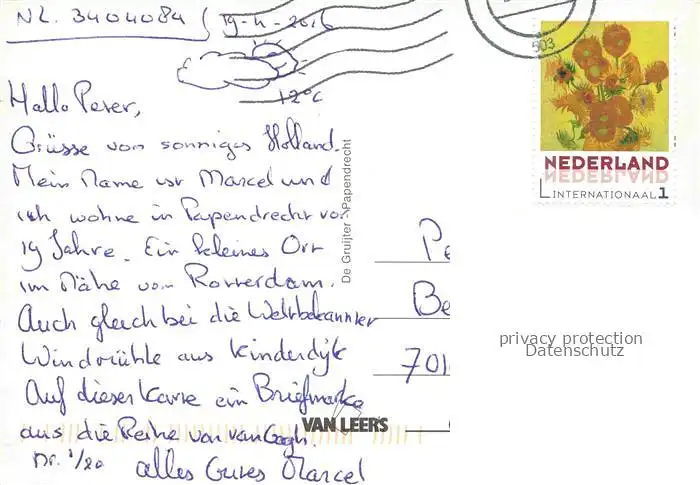 NL. 3404084 / 19-4-2016
12°C
Hallo Peter,
Grüsse von sonniges Holland.
Mein Name ist Marcel und
ich wohne in Papendrecht vor
19 Jahre. Ein kleines Ort
im Nähe von Rotterdam.
Auch gleich bei die Weltbekannter
Windmühle aus Kinderdijk
Auf dieser Karte ein Briefmarke
aus die Reihe von van Gogh.
Nr. 1/20
alles Gutes Marcel
De Gruijter - Papendrecht
VAN LEERS
503
NEDERLAND
INTERNATIONAAL 1
Pe
Be
701
privacy protection
Datenschutz